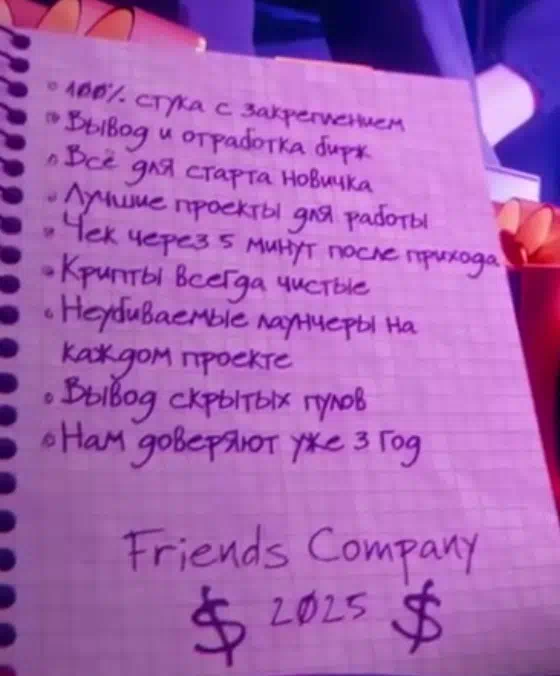 100% стука с закреплением
Вывод и отработка бирж
Всё для старта новичка
Лучшие проекты для работы
Чек через 5 минут после прихода
Крипты всегда чистые
Неубиваемые лаунчеры на
каждом проекте
Вывод скрытых пулов
Нам доверяют уже 3 год
Friends Company
$ 2025 $